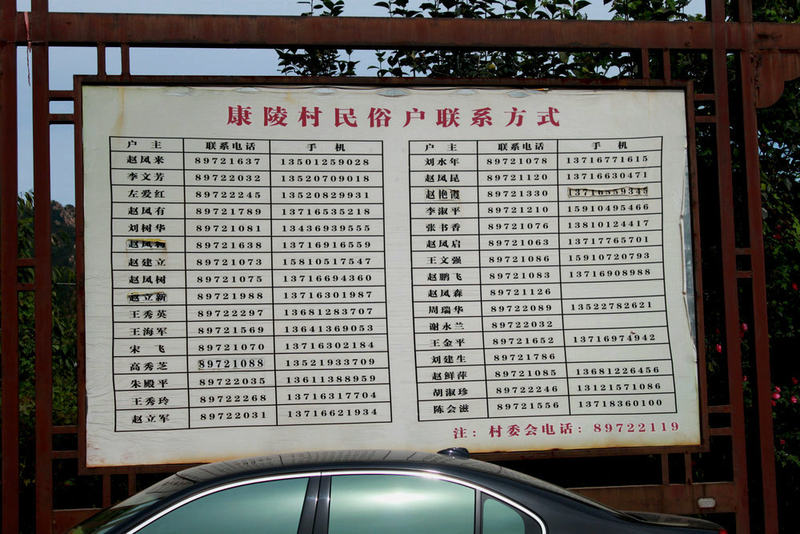 康陵村民俗户联系方式
户 主 联系电话 手 机
赵凤来 89721637 13501259028
李文芳 89722032 13520709018
左爱红 89722245 13520829931
赵凤有 89721789 13716535218
刘树华 89721081 13436939555
赵凤 89721638 13716916559
赵建立 89721073 15810517547
赵凤树 89721075 13716694360
赵立新 89721988 13716301987
王秀英 89722297 13681283707
王海军 89721569 13641369053
宋 飞 89721070 13716302184
高秀芝 89721088 13521933709
朱殿平 89722035 13611388959
王秀玲 89722268 13716317704
赵立军 89722031 13716621934
户 主 联系电话 手 机
刘永年 89721078 13716771615
赵凤昆 89721120 13716630471
赵艳霞 89721330 13716559349
李淑平 89721210 15910495466
张书香 89721076 13810124417
赵凤启 89721063 13717765701
王文强 89721086 15910720793
赵鹏飞 89721083 13716908988
赵凤森 89721126
周瑞华 89722089 13522782621
谢永兰 89722032
王金平 89721652 13716974942
刘建生 89721786
赵鲜萍 89721085 13681226456
胡淑珍 89722246 13121571086
陈会滋 89721556 13718360100
注：村委会电话：89722119